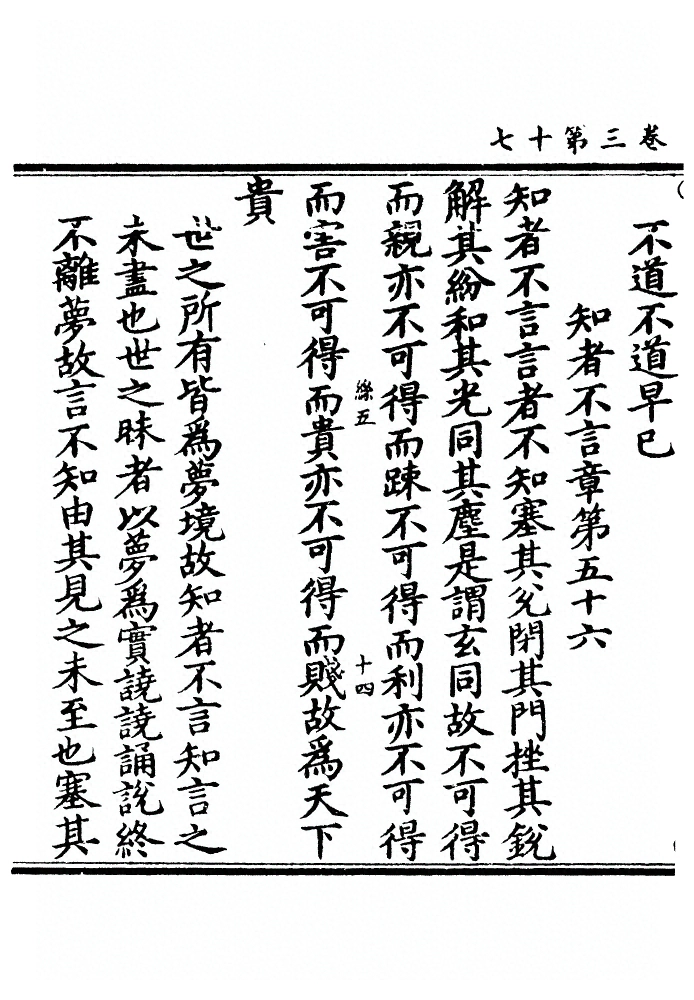 卷三第十七
不道不道早已
知者不言章第五十六
知者不言言者不知塞其兌閉其門挫其銳
解其紛和其光同其塵是謂玄同故不可得
而親亦不可得而踈不可得而利亦不可得
綠五
十四
而害不可得而貴亦不可得而賤故為天下
貴
世之所有皆為夢境故知者不言知言之
未盡也世之昧者以夢為實譊譊誦說終
不離夢故言不知由其見之未至也塞其